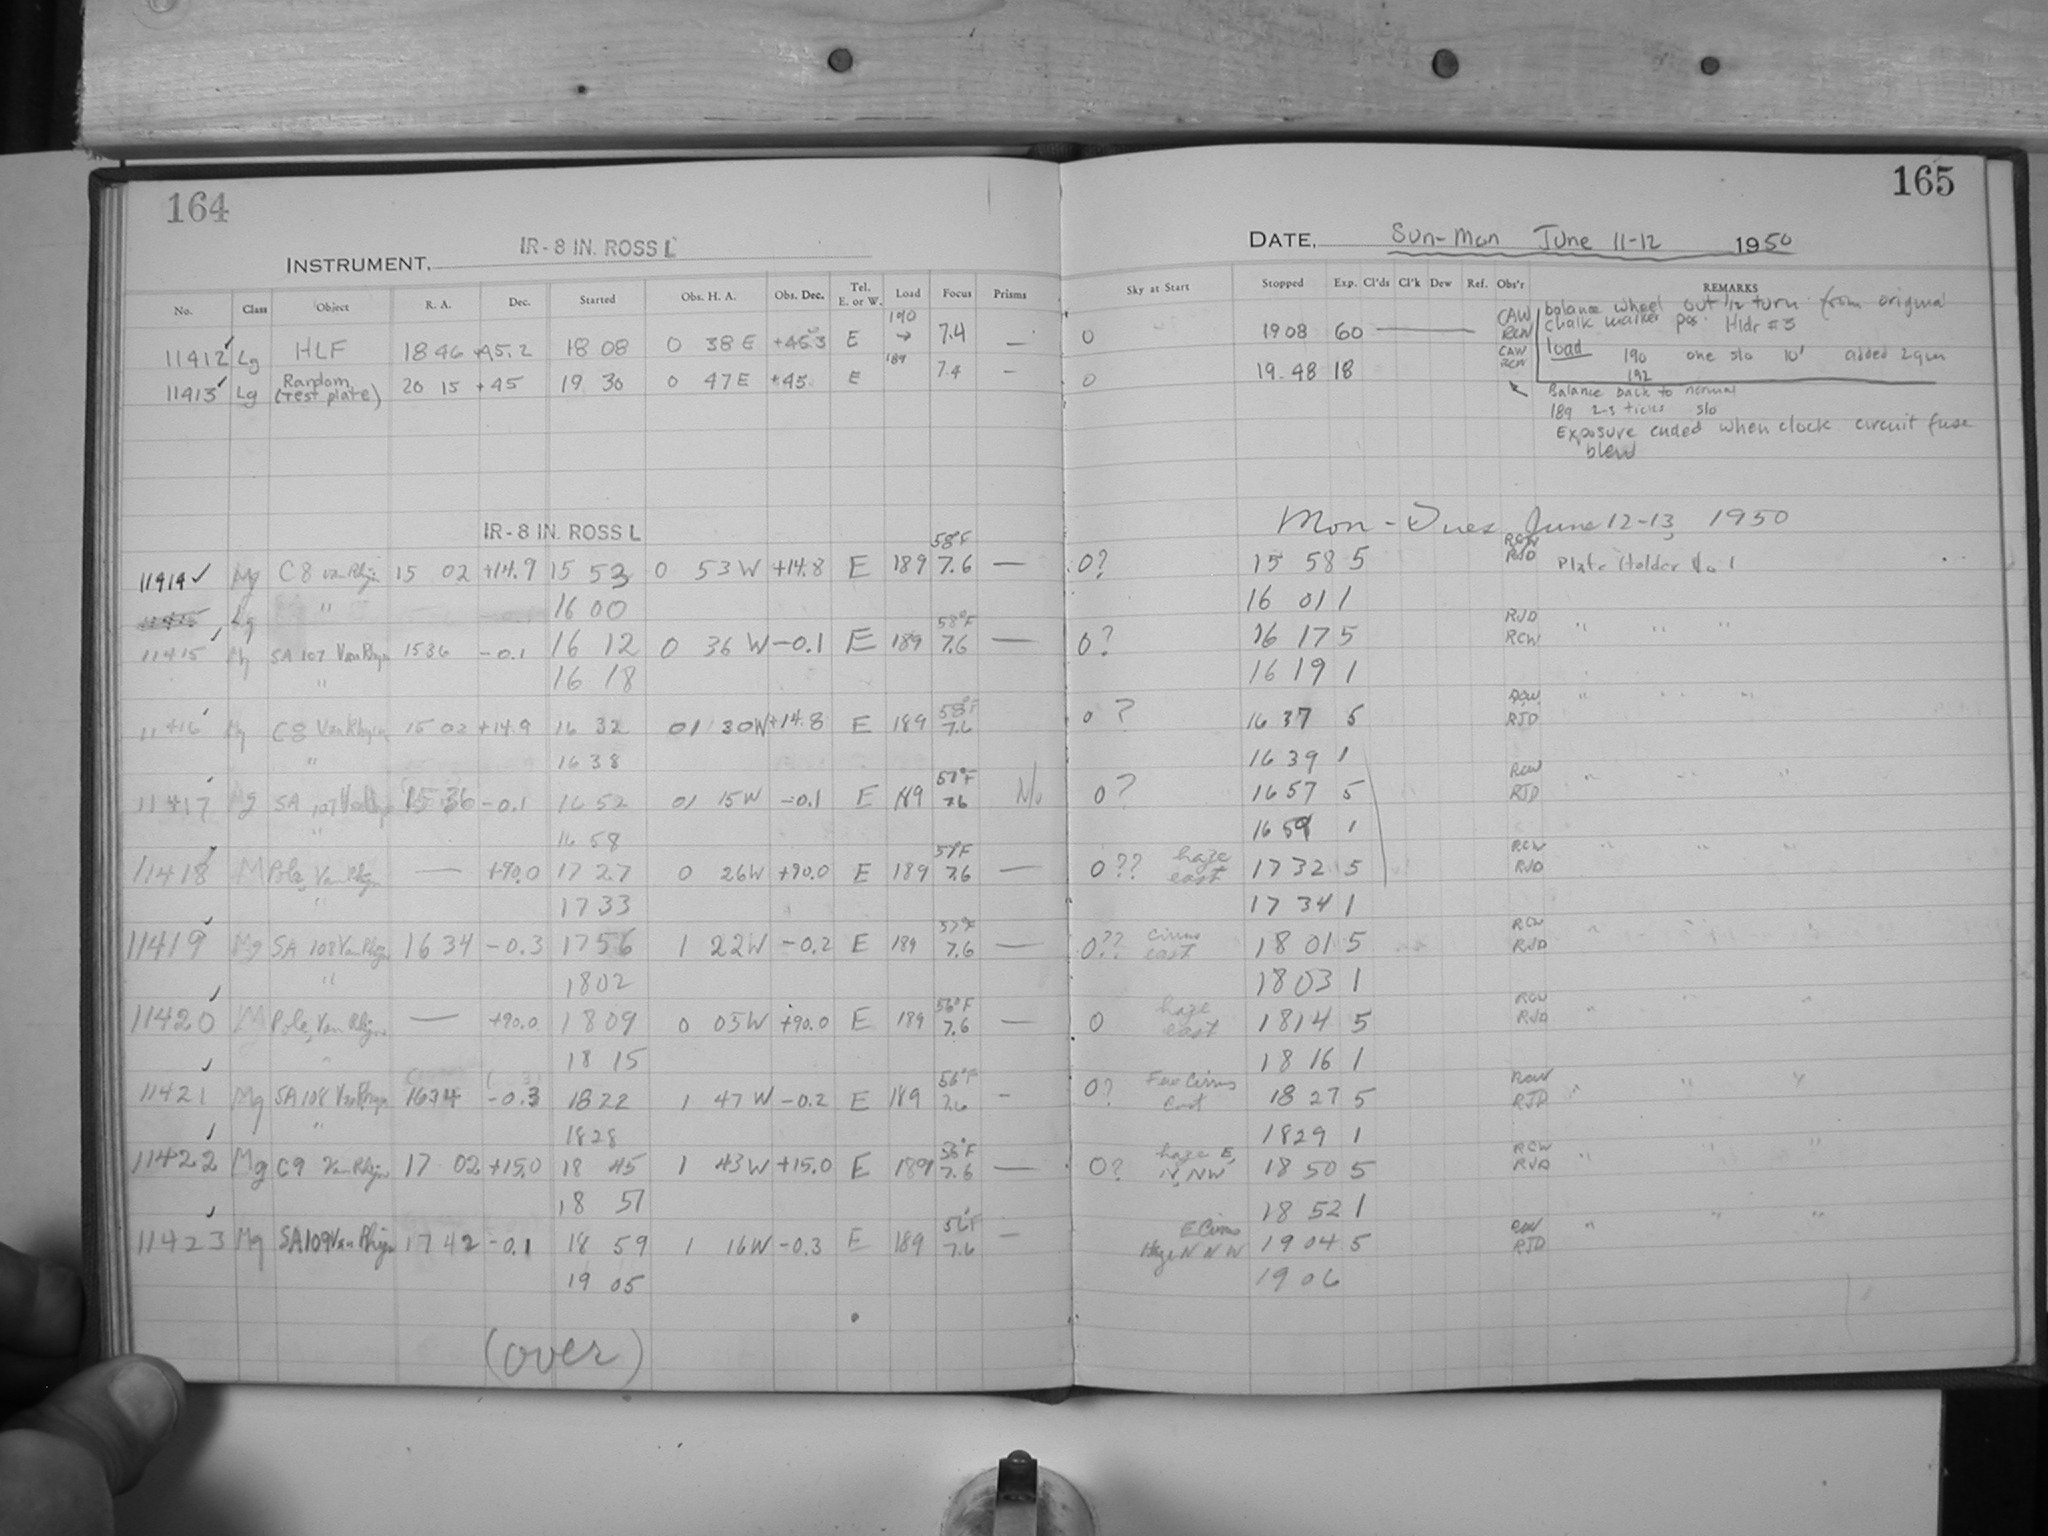 164
INSTRUMENT, IR - 8 IN. ROSS L
No. Class Object R. A. Dec. Started Obs. H. A. Obs. Dec. Tel. E. or W. Load Focus Prisms
11412 ✓ Lg HLF 18 46 +45.2 18 08 0 38 E +45.3 E 190 → 189 7.4 —
11413 ✓ Lg Random (test plate) 20 15 +45 19 30 0 47 E +45 E 7.4 —
IR - 8 IN. ROSS L
11414 ✓ Mg C8 van Rhijn 15 02 +14.9 15 53 0 53 W +14.8 E 189 58°F 7.6 —
11415 Lg " 16 00
11415 Mg SA 107 Van Rhijn 15 36 -0.1 16 12 0 36 W -0.1 E 189 58°F 7.6 —
" 16 18
11416 Mg C8 Van Rhijn 15 02 +14.9 16 32 01 30W +14.8 E 189 58°F 7.6
" 16 38
11417 Mg SA 107 Van Rhijn 15 36 -0.1 16 52 01 15W -0.1 E 189 57°F 7.6 No
" 16 58
11418 M Pole, Van Rhijn — +90.0 17 27 0 26W +90.0 E 189 57°F 7.6 —
" 17 33
11419 Mg SA 108 Van Rhijn 16 34 -0.3 17 56 1 22W -0.2 E 189 57°F 7.6 —
" 18 02
11420 M Pole, Van Rhijn — +90.0 18 09 0 05W +90.0 E 189 56°F 7.6 —
" 18 15
11421 Mg SA 108 Van Rhijn 16 34 -0.3 18 22 1 47 W -0.2 E 189 56°F 7.6 -
" 18 28
11422 Mg C9 Van Rhijn 17 02 +15.0 18 45 1 43W +15.0 E 189 56°F 7.6 —
18 51
11423 Mg SA 109 Van Rhijn 17 42 -0.1 18 59 1 16W -0.3 E 189 56°F 7.6 —
19 05
(over)
165
DATE, Sun-Mon June 11-12 1950
Sky at Start Stopped Exp. Cl'ds Cl'k Dew Ref. Obs'r REMARKS
0 19 08 60 — CAW RCW balance wheel out 1/2 turn from original
chalk marker pos. Hldr #3
load 190 one slo 10' added 2gm
192
0 19 48 18 CAW RCW Balance back to normal
189 2-3 ticks slo
Exposure ended when clock circuit fuse
blew
Mon - Tues June 12-13, 1950
0? 15 58 5 RCW RJD Plate Holder No 1
16 01 1
0? 16 17 5 RJD RCW " " "
16 19 1
0? 16 37 5 RCW RJD " " "
16 39 1
0? 16 57 5 RCW RJD " " "
16 59 1
0?? haze east 17 32 5 RCW RJD " " "
17 34 1
0?? Cirrus east 18 01 5 RCW RJD " " "
18 03 1
0 haze east 18 14 5 RCW RJD " " "
18 16 1
0? Few Cirrus East 18 27 5 RCW RJD " " "
18 29 1
0? haze E, N, NW 18 50 5 RCW RJD " " "
18 52 1
E Cirrus Haze N N W 19 04 5 RCW RJD " " "
19 06